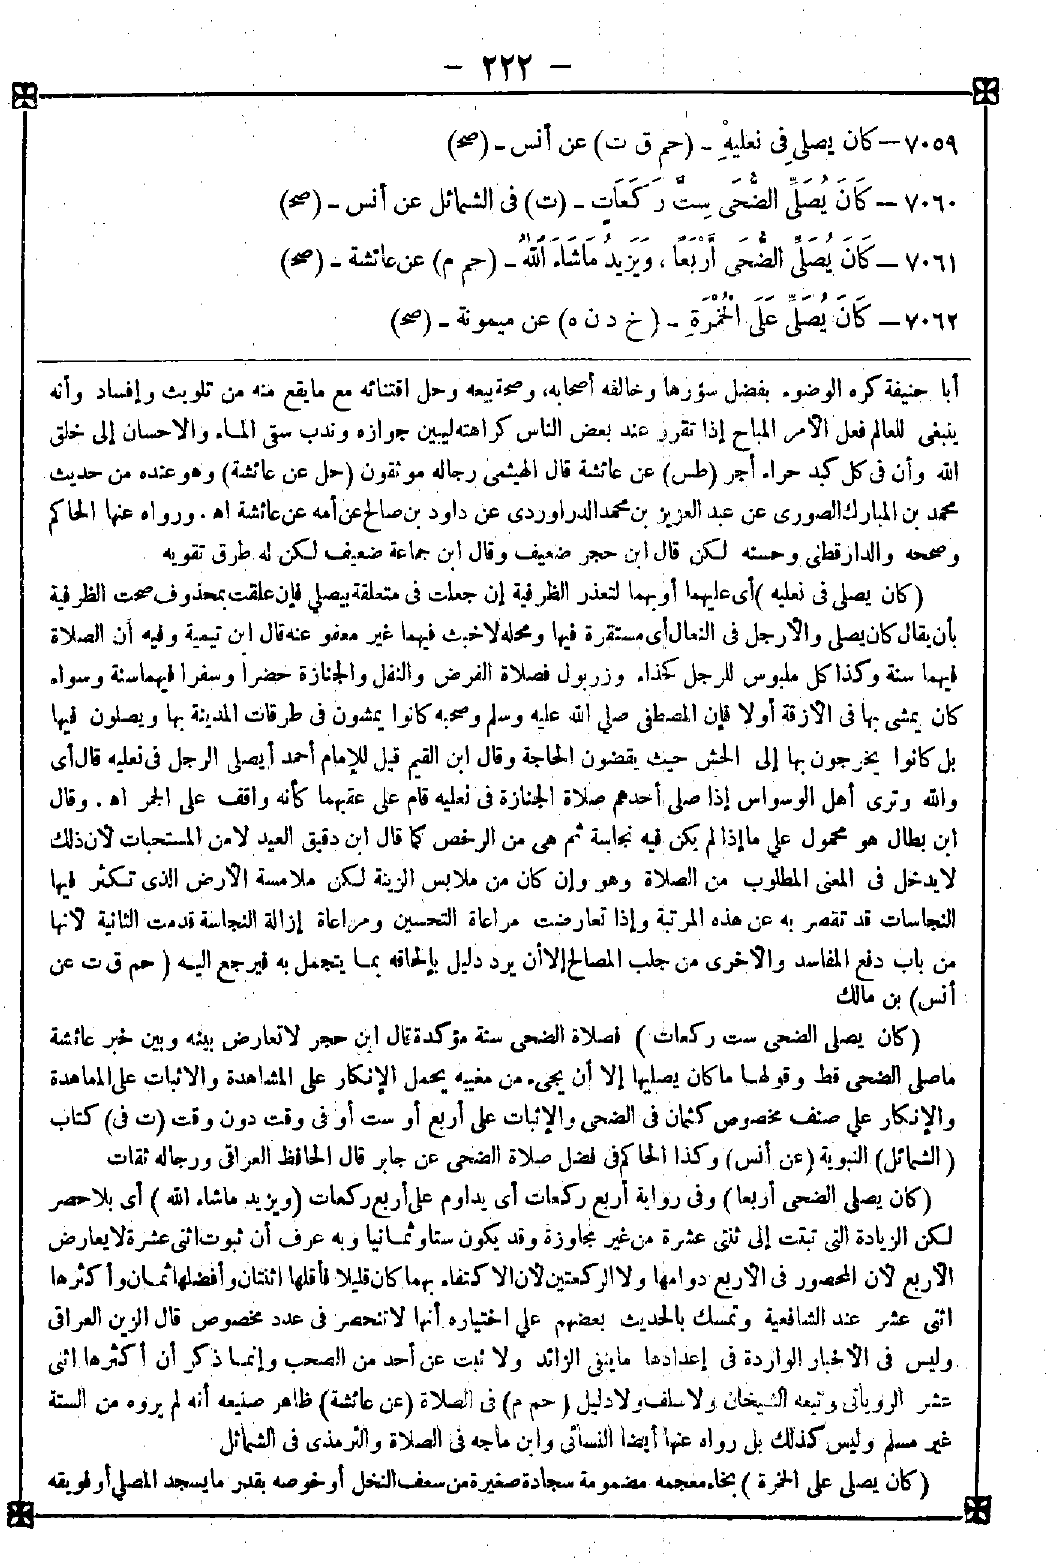 - ٢٢٢ -
٧٠٥٩ - كان يصلي في نعليهِ - (حم ق ت) عن أنس - (صح)
٧٠٦٠ - كَانَ يُصَلِّي الضُّحَى سِتَّ رَكَعَاتٍ - (ت) فى الشمائل عن أنس - (صح)
٧٠٦١ - كَانَ يُصَلِّي الضُّحَى أَرْبَعًا، وَيَزِيدُ مَاشَاءَ اللهُ - (حم م) عن عائشة - (صح)
٧٠٦٢ - كَانَ يُصَلِّي عَلَى الْخُمْرَةِ - (خ د ن ه) عن ميمونة - (صح)
أبا حنيفة كره الوضوء بفضل سؤرها وخالفه أصحابه، وصحة بيعه وحل اقتنائه مع مايقع منه من تلويث وإفساد وأنه
ينبغى للعالم فعل الأمر المباح إذا تقرر عند بعض الناس كراهته ليبين جوازه وندب سقى الماء والاحسان إلى خلق
الله وأن فى كل كبد حراء أجر (طس) عن عائشة قال الهيثمى رجاله موثقون (حل عن عائشة) وهو عنده من حديث
محمد بن المبارك الصورى عن عبد العزيز بن محمد الدراوردى عن داود بن صالح عن أمه عن عائشة اه. ورواه عنها الحاكم
وصححه والدارقطنى وحسنه لكن قال ابن حجر ضعيف وقال ابن جماعة ضعيف لكن له طرق تقويه
(كان يصلى فى نعليه) أى عليهما أو بهما لتعذر الظرفية إن جعلت فى متعلقة بيصلي فإن علقت بمحذوف صحت الظرفية
بأن يقال كان يصلى والأرجل فى النعال أى مستقرة فيها ومحله لاخبث فيهما غير معفو عنه قال ابن تيمية وفيه أن الصلاة
فيهما سنة وكذا كل ملبوس للرجل كحذاء وزربول فصلاة الفرض والنفل والجنازة حضرا وسفرا فيهما سنة وسواء
كان يمشى بها فى الأزقة أولا فإن المصطفى صلي الله عليه وسلم وصحبه كانوا يمشون فى طرقات المدينة بها ويصلون فيها
بل كانوا يخرجون بها إلى الحش حيث يقضون الحاجة وقال ابن القيم قيل للإمام أحمد أيصلى الرجل فى نعليه قال أى
والله وترى أهل الوسواس إذا صلى أحدهم صلاة الجنازة فى نعليه قام على عقبهما كأنه واقف على الجمر اه. وقال
ابن بطال هو محمول علي ماإذا لم يكن فيه نجاسة ثم هى من الرخص كما قال ابن دقيق العيد لامن المستحبات لأن ذلك
لايدخل فى المعنى المطلوب من الصلاة وهو وإن كان من ملابس الزينة لكن ملامسة الأرض الذى تكثر فيها
النجاسات قد تقصر به عن هذه المرتبة وإذا تعارضت مراعاة التحسين ومراعاة إزالة النجاسة قدمت الثانية لأنها
من باب دفع المفاسد والأخرى من جلب المصالح إلا أن يرد دليل بإلحاقه بما يتجمل به فيرجع اليه (حم ق ت عن
أنس) بن مالك
(كان يصلى الضحى ست ركعات) فصلاة الضحى سنة مؤكدة قال ابن حجر لا تعارض بينه وبين خبر عائشة
ماصلى الضحى قط وقولها ماكان يصليها إلا أن يجىء من مغيبه يحمل الإنكار على المشاهدة والاثبات على المشاهدة
والإنكار علي صنف مخصوص كثمان فى الضحى والإثبات على أربع أو ست أو فى وقت دون وقت (ت فى) كتاب
(الشمائل) النبوية (عن أنس) وكذا الحاكم فى فضل صلاة الضحى عن جابر قال الحافظ العراقى ورجاله ثقات
(كان يصلى الضحى أربعا) وفى رواية أربع ركعات أى يداوم على أربع ركعات (ويزيد ماشاء الله) أى بلا حصر
لكن الزيادة التى تبقت إلى ثنتى عشرة من غير مجاوزة وقد يكون ستا وثمانيا وبه عرف أن ثبوت اثنى عشرة لايعارض
الأربع لأن المحصور فى الأربع دوامها ولا الركعتين لأن الاكتفاء بهما كان قليلا فأقلها اثنتان وأفضلها ثمان وأكثرها
اثنى عشر عند الشافعية وتمسك بالحديث بعضهم علي اختياره أنها لاتنحصر فى عدد مخصوص قال الزين العراقى
وليس فى الأخبار الواردة فى إعدادها ماينفى الزائد ولا ثبت عن أحد من الصحب وإنما ذكر أن أكثرها اثنى
عشر الرويانى وتبعه الشيخان ولا سلف ولا دليل (حم م) فى الصلاة (عن عائشة) ظاهر صنيعه أنه لم يروه من الستة
غير مسلم وليس كذلك بل رواه عنها أيضا النسائى وابن ماجه فى الصلاة والترمذى فى الشمائل
(كان يصلى على الخمرة) بخاء معجمه مضمومة سجادة صغيرة من سعف النخل أو خوصه بقدر مايسجد المصلي أو فويقه